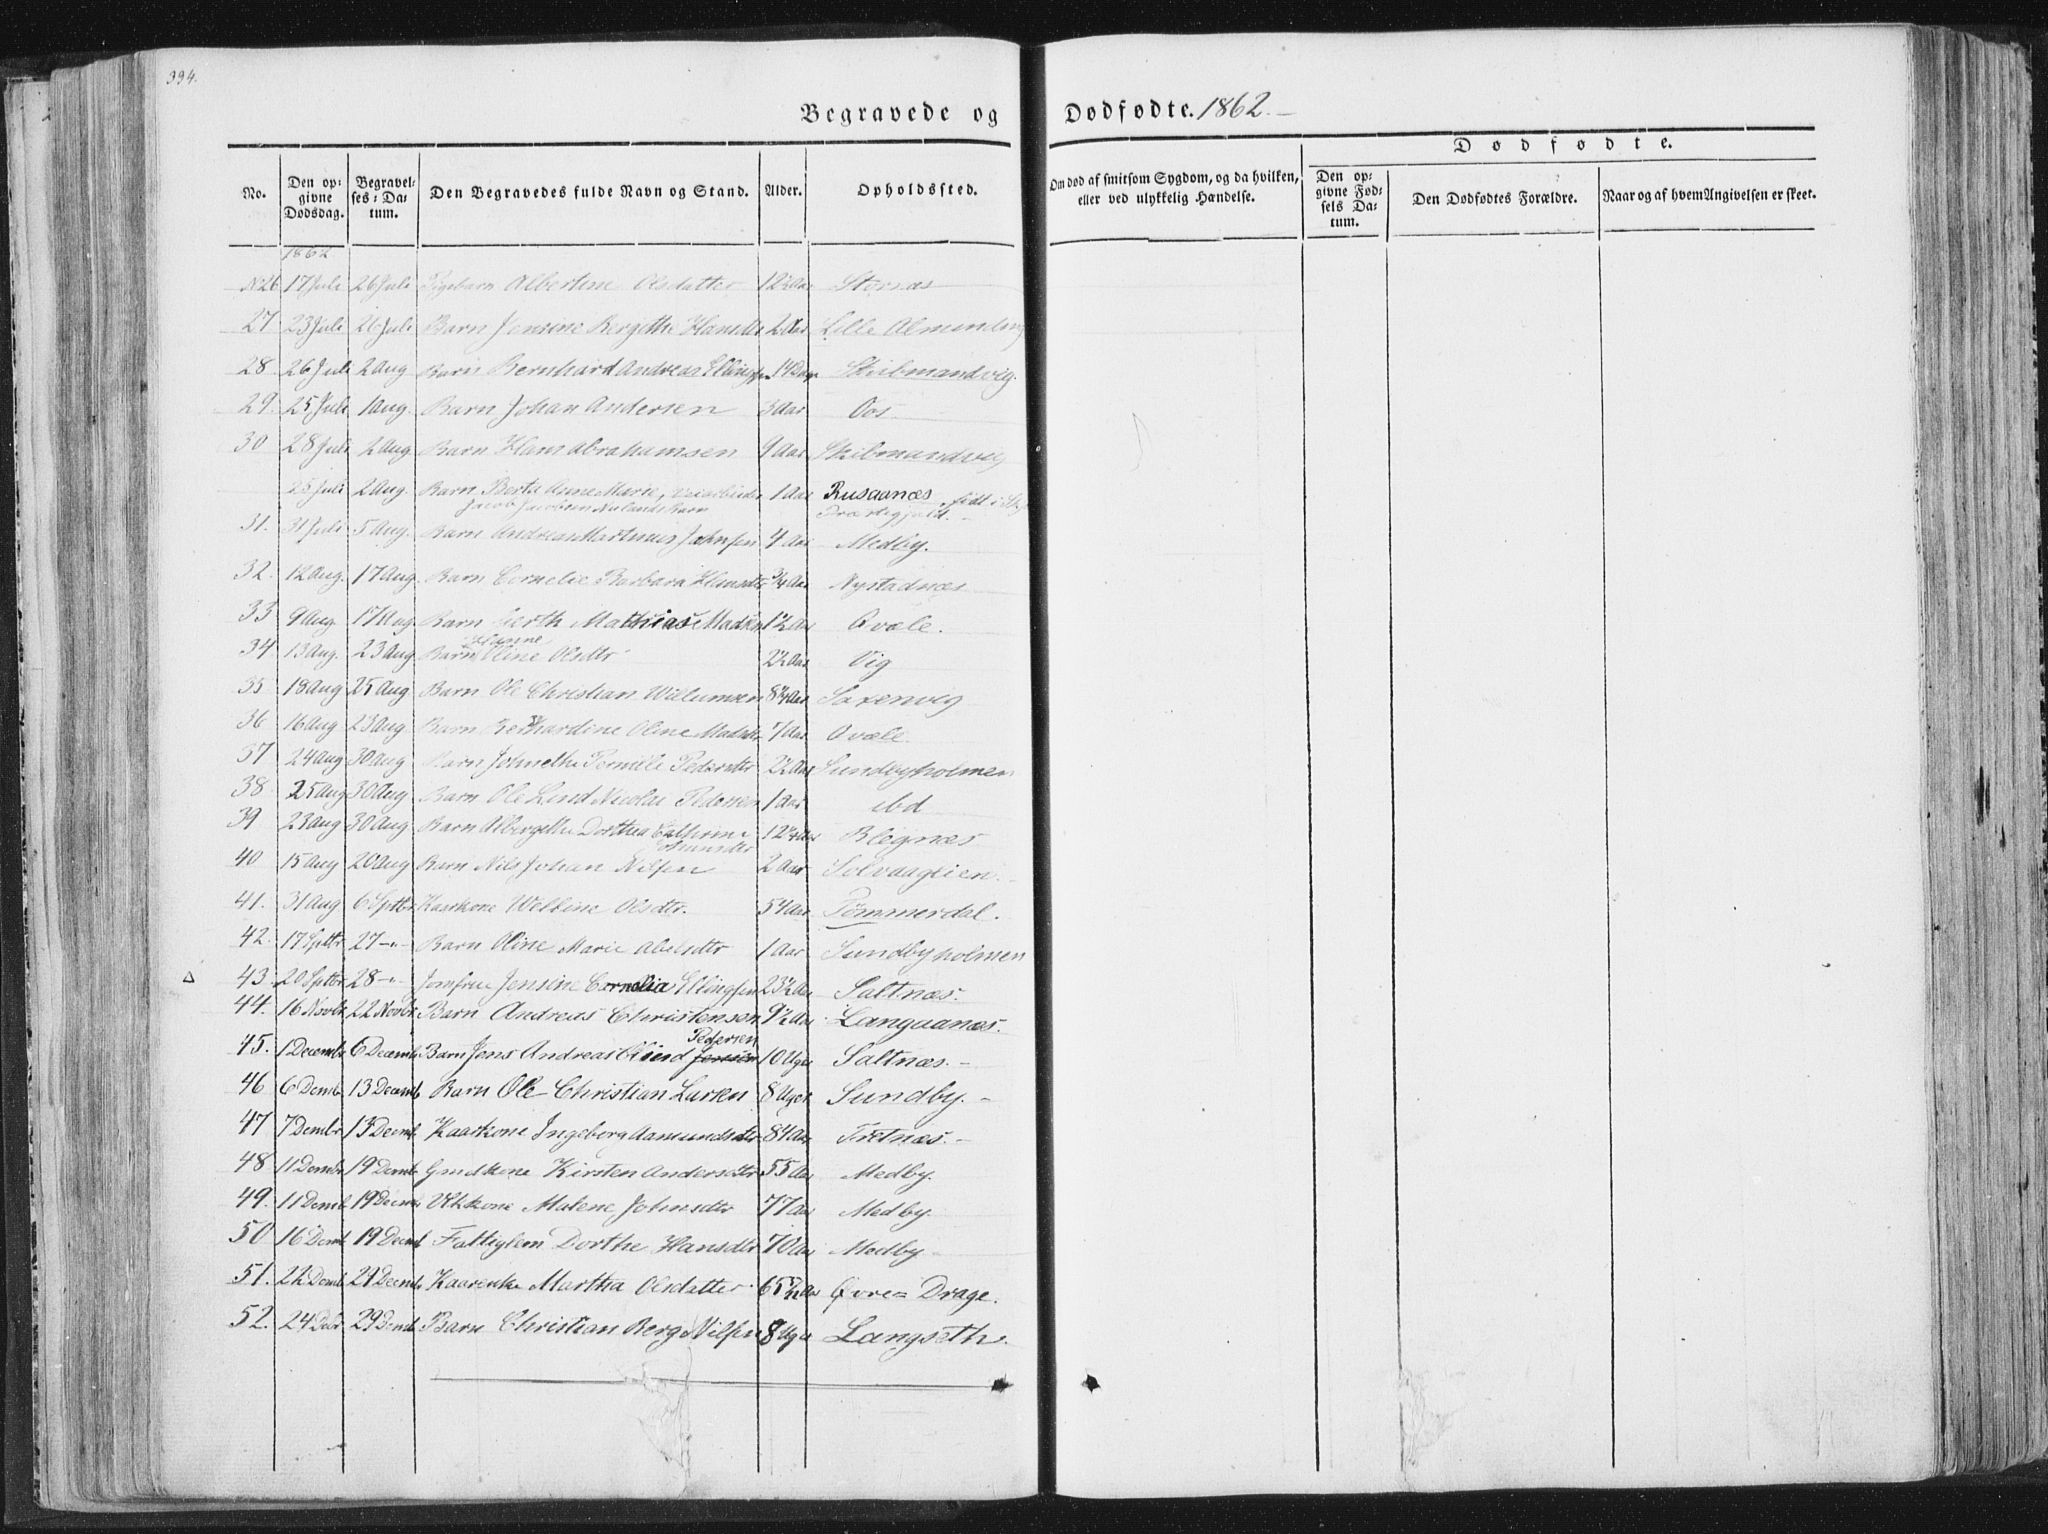 394.
Begravede og Dødfødte. 1862.
No. Den opgivne Dødsdag. Begravelses-Datum. Den Begravedes fulde Navn og Stand. Alder. Opholdssted. Om død af smitsom Sygdom, og da hvilken, eller ved ulykkelig Hændelse. Dødfødte. Den opgivne Fødsels Datum. Den Dødfødtes Forældre. Naar og af hvem Angivelsen er skeet.
1862
N26 17 Juli 26 Juli Pigebarn Albertine Olsdatter 12 Aar Stornæs
27 23 Juli 26 Juli Barn Jensine Bergithe Hansdtr 2 Aar Lille Almending
28 26 Juli 2 Aug Barn Bernhard Andreas Ellingsen 14 Dage Skibmandvig.
29. 25 Juli 1 Aug. Barn Johan Andersen 3 Aar Oos
30 28 Juli 2 Aug Barn Hans Abrahamsen 9 Aar Skibmandvig
25 Juli 2 Aug. Barn Berta Anne Marie, 1 Aar Rusaanæs, født i
Jacob Jacobsen Nulands Barn Præstegjeld.
31. 31 Juli 5 Aug. Barn Andreas Martinus Johnsen 4 Aar Medby.
32. 12 Aug. 17 Aug. Barn Cornelie Barbara Hansdtr 3/4 Aar Nystadnæs
33 9 Aug 17 Aug. Barn Gerth Mathias Madsen 1½ Aar Qvæle.
Hanne
34 13 Aug. 23 Aug Barn Oline Olsdtr 2½ Aar Vig
35 18 Aug 25 Aug Barn Ole Christian Willumsen 8¼ Aar Saxenvig
36 16 Aug 23 Aug Barn Bernhardine Oline Madsdtr 7 Aar Qvæle.
37 24 Aug 30 Aug Barn Johnethe Pernille Pedersdtr 2½ Aar Sundbyholmen
38 25 Aug 30 Aug Barn Ole Lind Nicolai Pedersen 1 Aar ibd
39 23 Aug 30 Aug Barn Albergithe Dorthea Cathrine 12¼ Aar Blegnæs
40 15 Aug 20 Aug Barn Nils Johan Nilsen 2 Aar Solvaaglien.
41. 31 Aug 6 Sptbr Kaarkone Welline Olsdtr. 54 Aar Tømmerdal.
42. 17 Sptbr 27 -"- Barn Oline Marie Abelsdtr 1 Aar Sundbyholmen
△ 43. 20 Sptbr 28 -"- Jomfrue Jensine Cornelia Ellingsen 23½ Aar Saltnæs.
44. 16 Novbr 22 Novbr Barn Andreas Christensen 9½ Aar Langaanæs.
Pedersen
45. 1 Decembr 6 Decemb Barn Jens Andreas Jensen 10 Uger Saltnæs.
46 6 Dembr 13 Decemb Barn Ole Christian Larsen 8 Uger Sundby.
47 7 Dembr 13 Decmb Kaarkone Ingeborg Aamundsdtr 84 Aar Tretnæs.
48 11 Dembr 19 Dembr Gmdkone Kirsten Andersdtr 55 Aar Medby.
49. 11 Demb 19 Decmb Olkkone Malene Johnsdtr 77 Aar Medby.
50 16 Demb 19 Decmb Fattiglem Dorthe Hansdtr 70 Aar Medby
51. 22 Demb 27 Decmb Kaarenke Martha Olsdatter. 65 Aar Øvre= Drage.
52. 24 Debr 29 Demb Barn Christian Berg Nilsen 8 Uger Langseth.